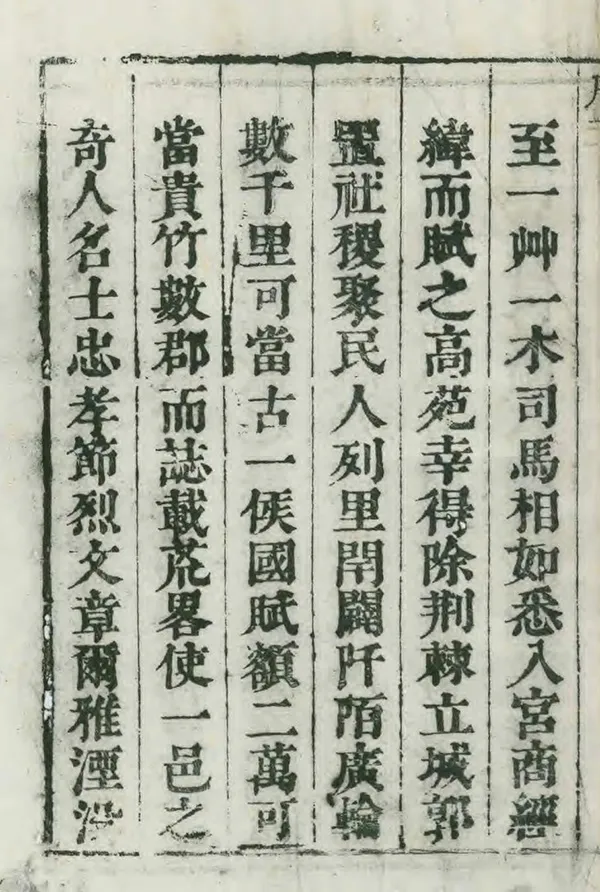 至一艸一木司馬相如悉入宮商經
緯而賦之高苑幸得除荆棘立城郭
置社稷聚民人列里閈闢阡陌廣輪
數千里可當古一侯國賦額二萬可
當貴竹數郡而誌載荒畧使一邑之
奇人名士忠孝節烈文章爾雅湮沒